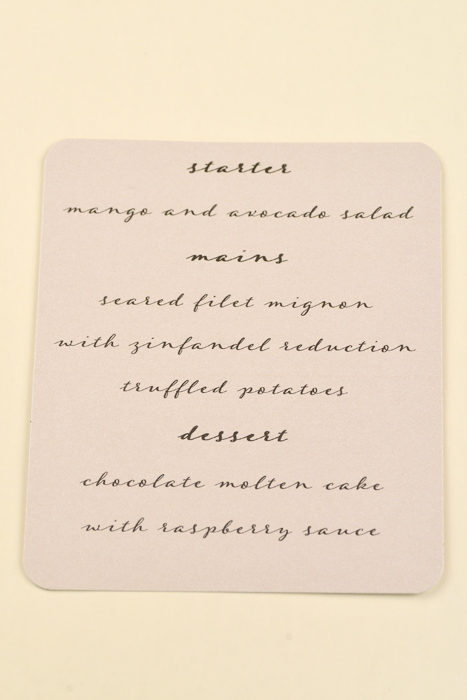 starter
mango and avocado salad
mains
seared filet mignon
with zinfandel reduction
truffled potatoes
dessert
chocolate molten cake
with raspberry sauce